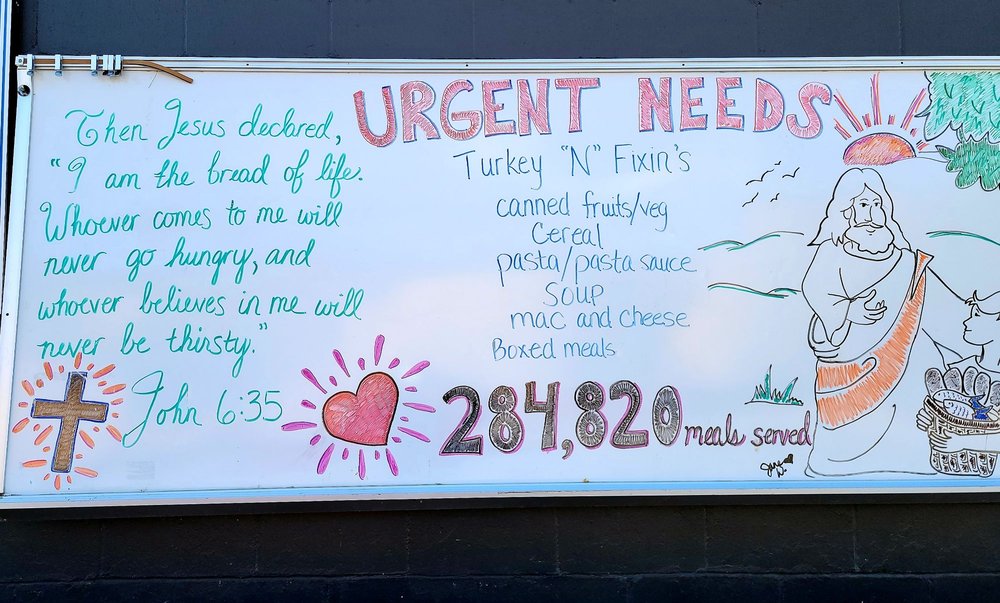 Then Jesus declared,
"I am the bread of life.
Whoever comes to me will
never go hungry, and
whoever believes in me will
never be thirsty."
John 6:35
URGENT NEEDS
Turkey "N" Fixin's
canned fruits/veg
Cereal
pasta/pasta sauce
SOUP
mac and cheese
Boxed meals
284,820 meals served